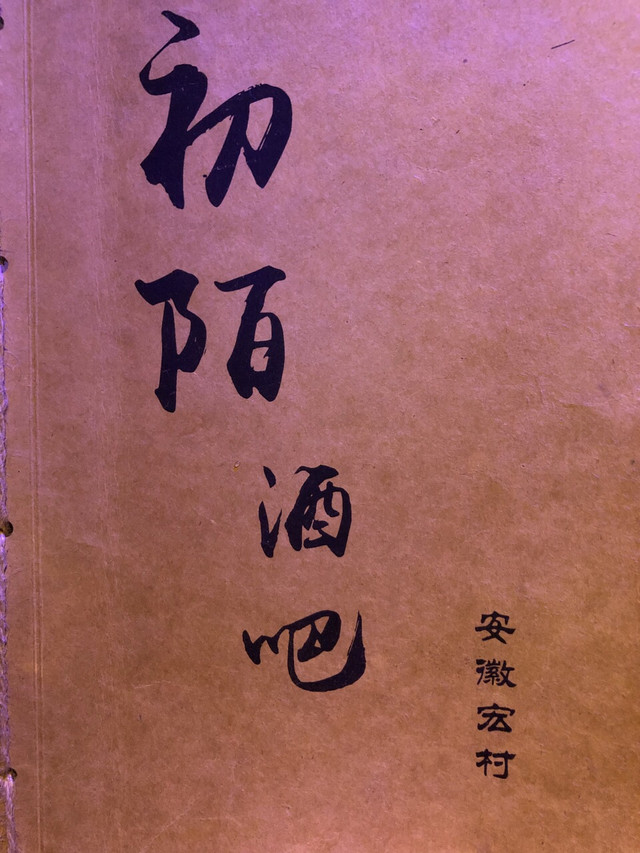 初陌
酒吧
安徽宏村